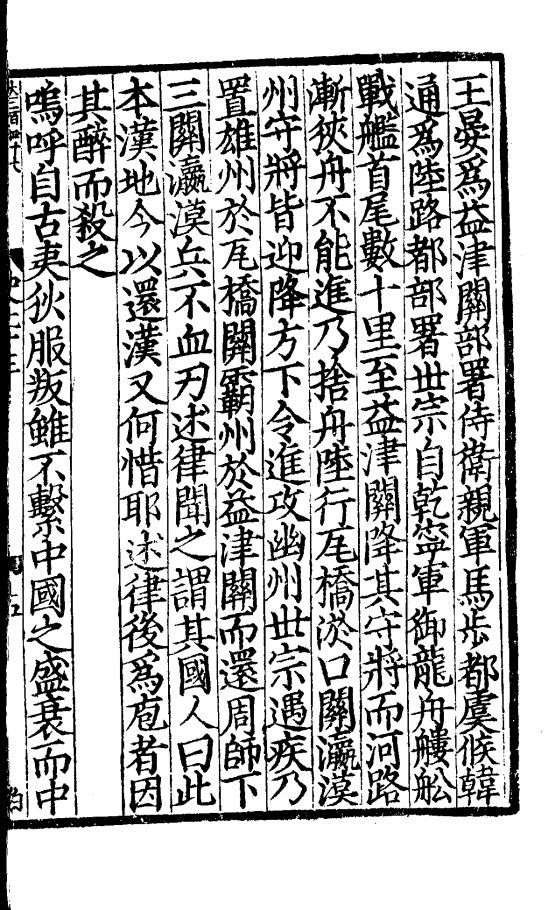 王晏爲益津關部署侍衛親軍馬步都虞候韓
通爲陸路都部署世宗自乾寧軍御龍舟艛舩
戰艦首尾數十里至益津關降其守將而河路
漸狹舟不能進乃捨舟陸行瓦橋淤口關瀛漠
州守將皆迎降方下令進攻幽州世宗遇疾乃
置雄州於瓦橋關霸州於益津關而還周師下
三關瀛漠兵不血刃述律聞之謂其國人曰此
本漢地今以還漢又何惜耶述律後爲庖者因
其醉而殺之
嗚呼自古夷狄服叛雖不繫中國之盛衰而中